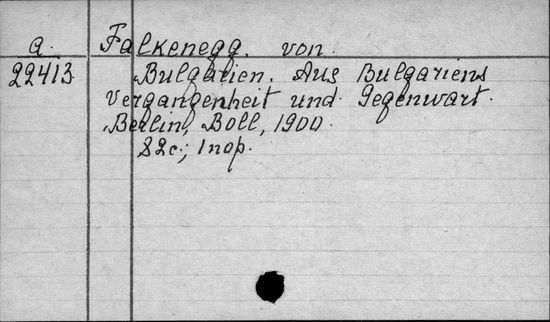 a. Falkenegg. von
22413 Bulgarien. Aus Bulgariens
Vergangenheit und Gegenwart.
Berlin, Boll, 1900
82c.; 1nop.